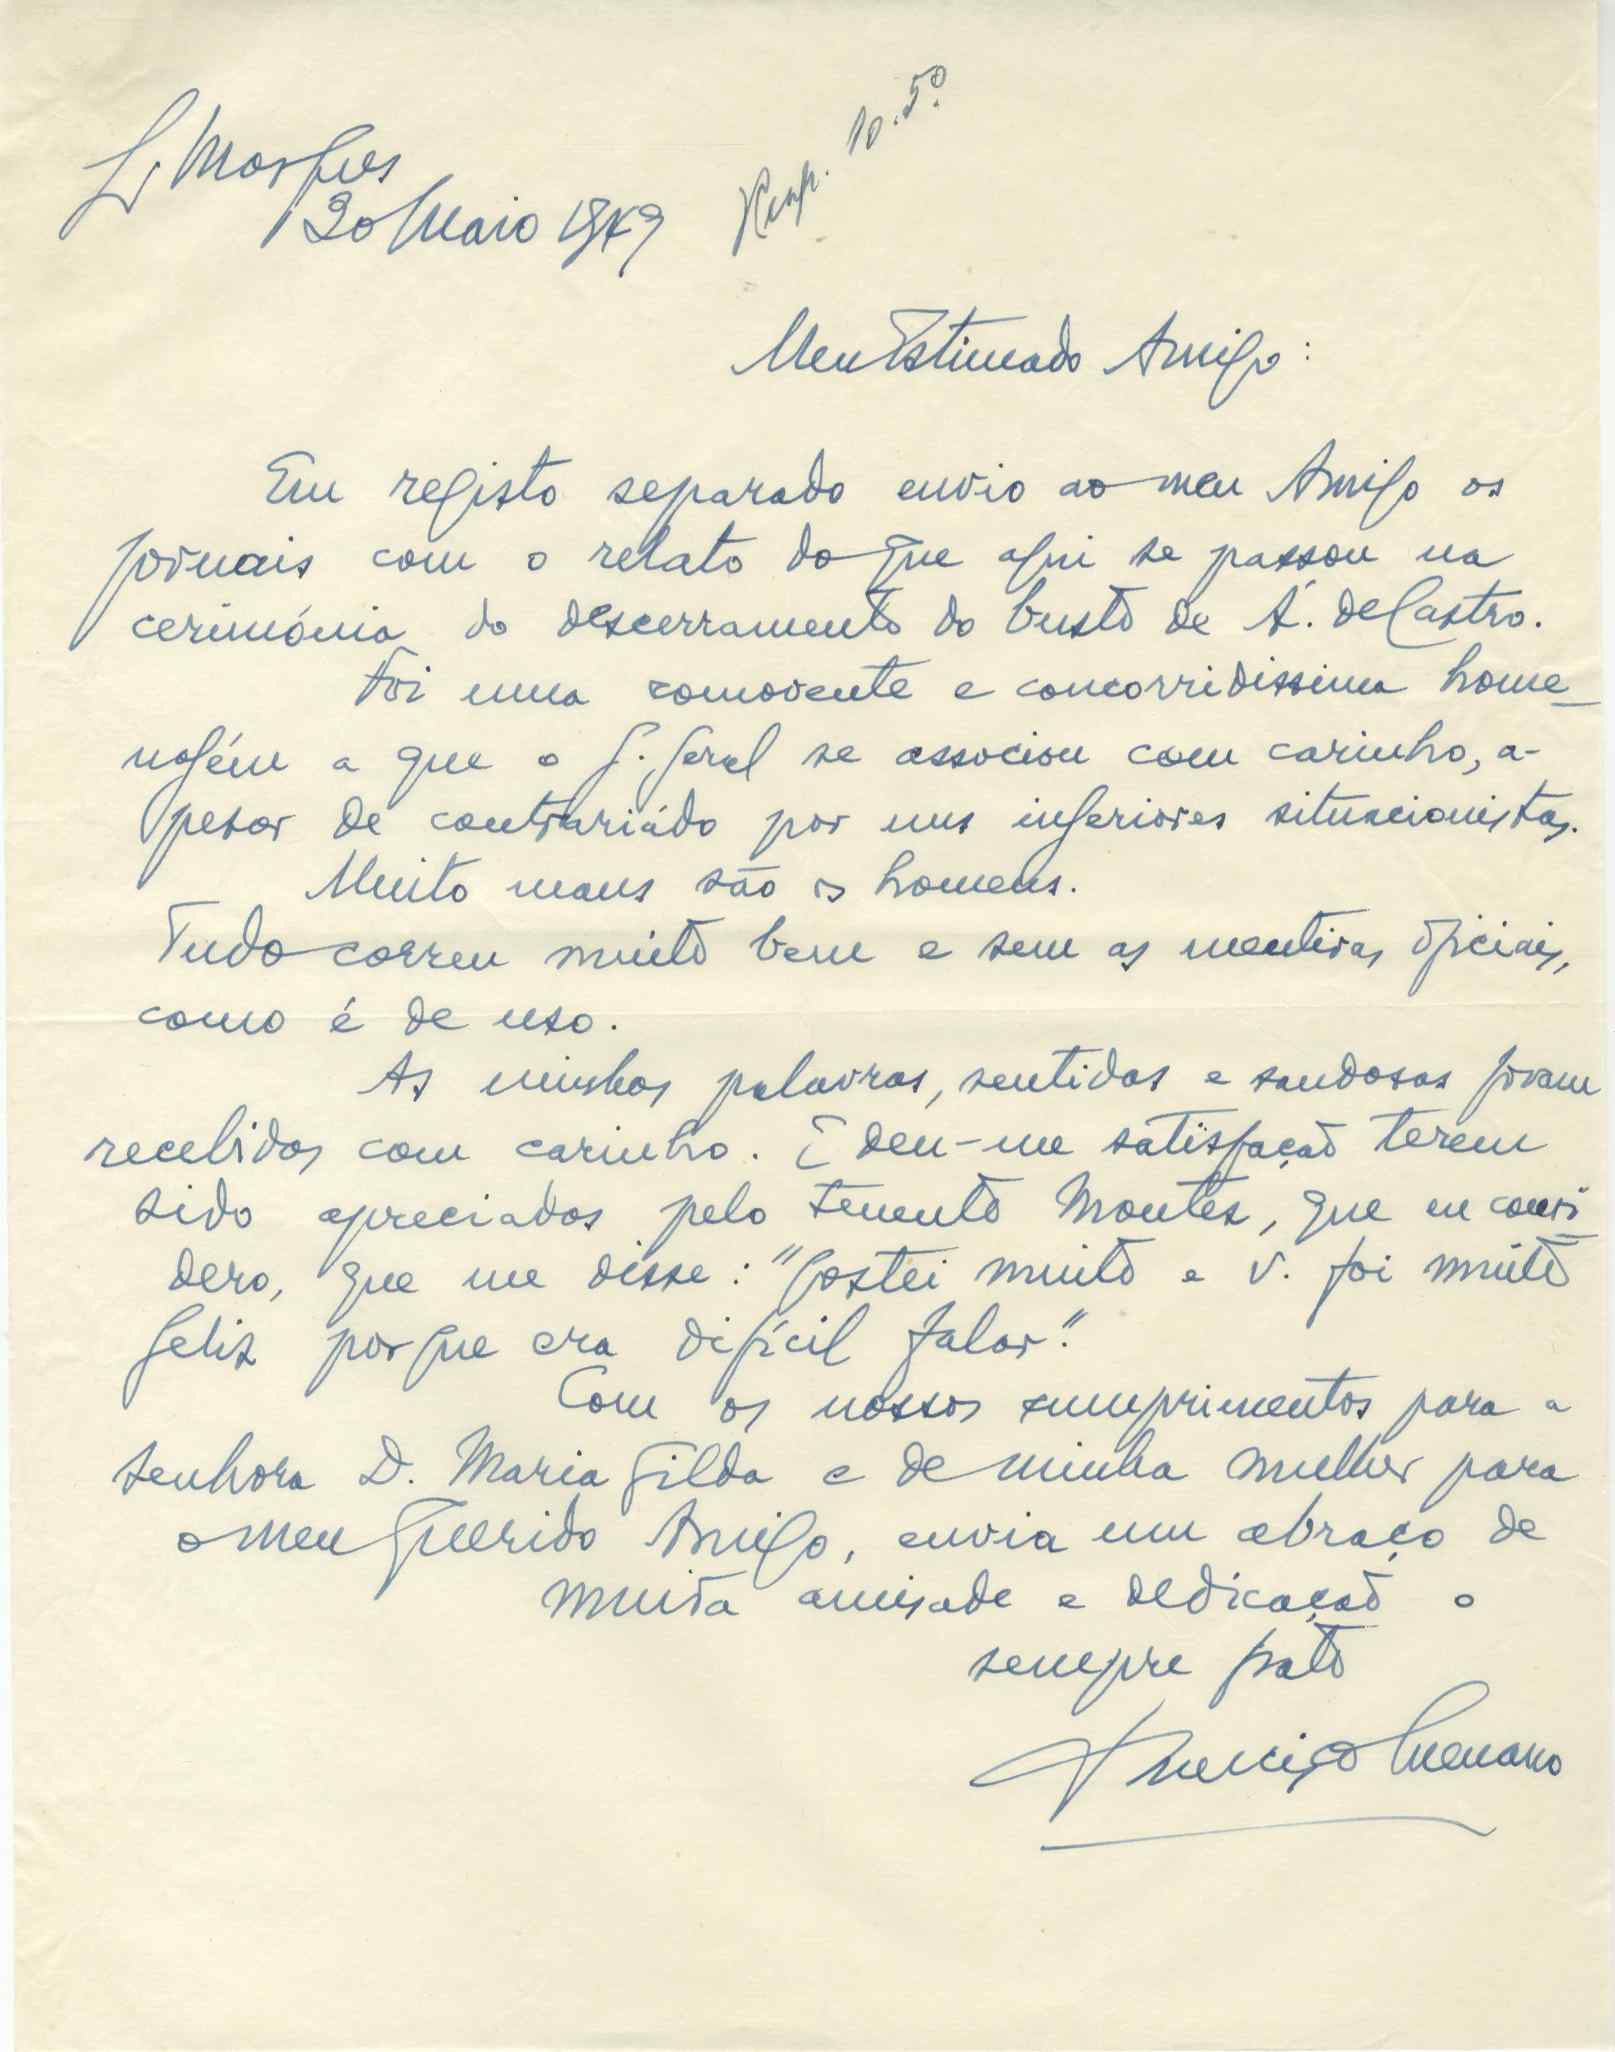 L. Marques
30 Maio 1949
Resp. 10.5º
Meu Estimado Amigo:
Em registo separado envio ao meu Amigo os
jornais com o relato do que aqui se passou na
cerimónia do descerramento do busto de Á. de Castro.
Foi uma comovente e concorridissima home-
nagém a que o G. Geral se associou com carinho, a-
pesar de contrariádo por uns inferiores situacionistas.
Muito maus são os homens.
Tudo correu muito bem e sem as mentiras oficiais,
como é de uso.
As minhas palavras, sentidas e saudosas foram
recebidas com carinho. E deu-me satisfação terem
sido apreciadas pelo Tenente Montez, que eu convi-
dero, que me disse: "Gostei muito e V. foi muito
feliz porque era difícil falar."
Com os nossos cumprimentos para a
senhora D. Maria Gilda e de minha mulher para
o meu querido Amigo, envia um abraço de
muita amisade e dedicação o
sempre grato
Menano